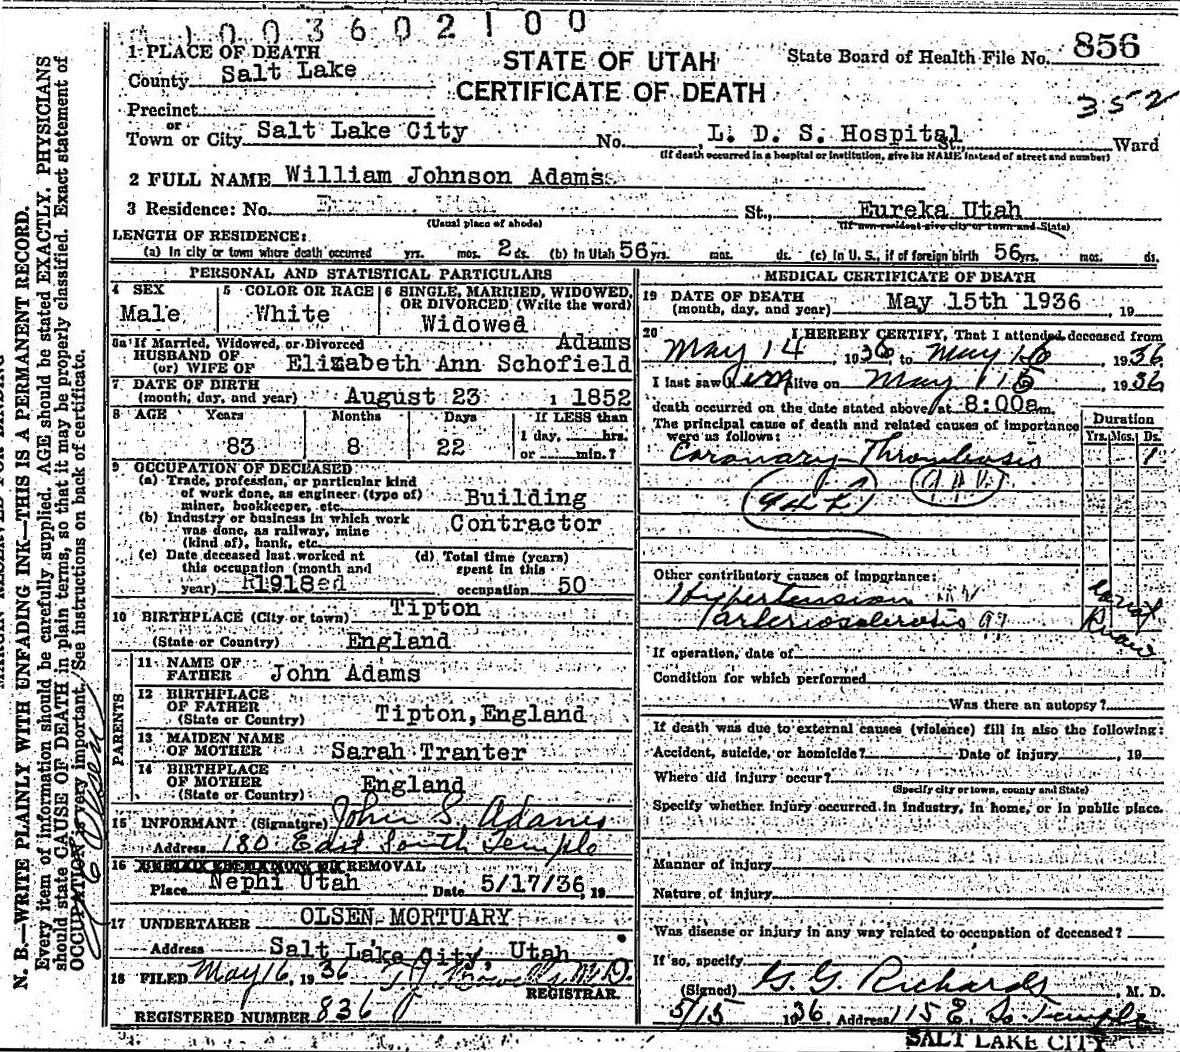 1003602100
1 PLACE OF DEATH
County Salt Lake
STATE OF UTAH
CERTIFICATE OF DEATH
State Board of Health File No. 856
352
Precinct
or
Town or City Salt Lake City No. L. D. S. Hospital St., Ward
(If death occurred in a hospital or institution, give its NAME instead of street and number)
2 FULL NAME William Johnson Adams
3 Residence: No. St., Eureka Utah
(Usual place of abode) (If non-resident give city or town and State)
LENGTH OF RESIDENCE:
(a) In city or town where death occurred yrs. mos. 2 ds. (b) In Utah 56 yrs. mos. ds. (c) In U. S., if of foreign birth 56 yrs. mos. ds.
PERSONAL AND STATISTICAL PARTICULARS
4 SEX 5 COLOR OR RACE 6 SINGLE, MARRIED, WIDOWED, OR DIVORCED (Write the word)
Male White Widowed
6a If Married, Widowed, or Divorced Adams
HUSBAND OF
(or) WIFE OF Elizabeth Ann Schofield
7 DATE OF BIRTH
(month, day, and year) August 23 1 1852
8 AGE Years Months Days If LESS than
1 day, hrs.
83 8 22 or min.?
9 OCCUPATION OF DECEASED
(a) Trade, profession, or particular kind
of work done, as engineer (type of)
miner, bookkeeper, etc. Building
(b) Industry or business in which work Contractor
was done, as railway, mine
(kind of), bank, etc.
(c) Date deceased last worked at (d) Total time (years)
this occupation (month and spent in this
year) R1918ed occupation 50
10 BIRTHPLACE (City or town) Tipton
(State or Country) England
PARENTS
11 NAME OF
FATHER John Adams
12 BIRTHPLACE
OF FATHER
(State or Country) Tipton, England
13 MAIDEN NAME
OF MOTHER Sarah Tranter
14 BIRTHPLACE
OF MOTHER
(State or Country) England
15 INFORMANT (Signature) John S Adams
Address 180 East South Temple
16 REMOVAL
Place Nephi Utah Date 5/17/36, 19
17 UNDERTAKER OLSEN MORTUARY
Address Salt Lake City, Utah
18 FILED May 16, 1936 M.D.
REGISTRAR.
REGISTERED NUMBER 836
MEDICAL CERTIFICATE OF DEATH
19 DATE OF DEATH
(month, day, and year) May 15th 1936, 19
20 I HEREBY CERTIFY, That I attended deceased from
May 14 1936 to May 1936
I last saw him alive on May 15, 1936
death occurred on the date stated above, at 8:00a m.
The principal cause of death and related causes of importance
were as follows:
Duration
Yrs. Mos. Ds.
Coronary Thrombosis 1
Other contributory causes of importance:
Hypertension
arteriosclerosis 97
If operation, date of
Condition for which performed
Was there an autopsy?
If death was due to external causes (violence) fill in also the following:
Accident, suicide, or homicide? Date of injury, 19
Where did injury occur?
(Specify city or town, county and State)
Specify whether injury occurred in industry, in home, or in public place.
Manner of injury
Nature of injury
Was disease or injury in any way related to occupation of deceased?
If so, specify
(Signed) G. G. Richards, M. D.
5/15 1936, Address 115 E. So Temple
SALT LAKE CITY
N. B.—WRITE PLAINLY WITH UNFADING INK—THIS IS A PERMANENT RECORD.
Every item of information should be carefully supplied. AGE should be stated EXACTLY. PHYSICIANS
should state CAUSE OF DEATH in plain terms, so that it may be properly classified. Exact statement of
OCCUPATION is very important. See instructions on back of certificate.